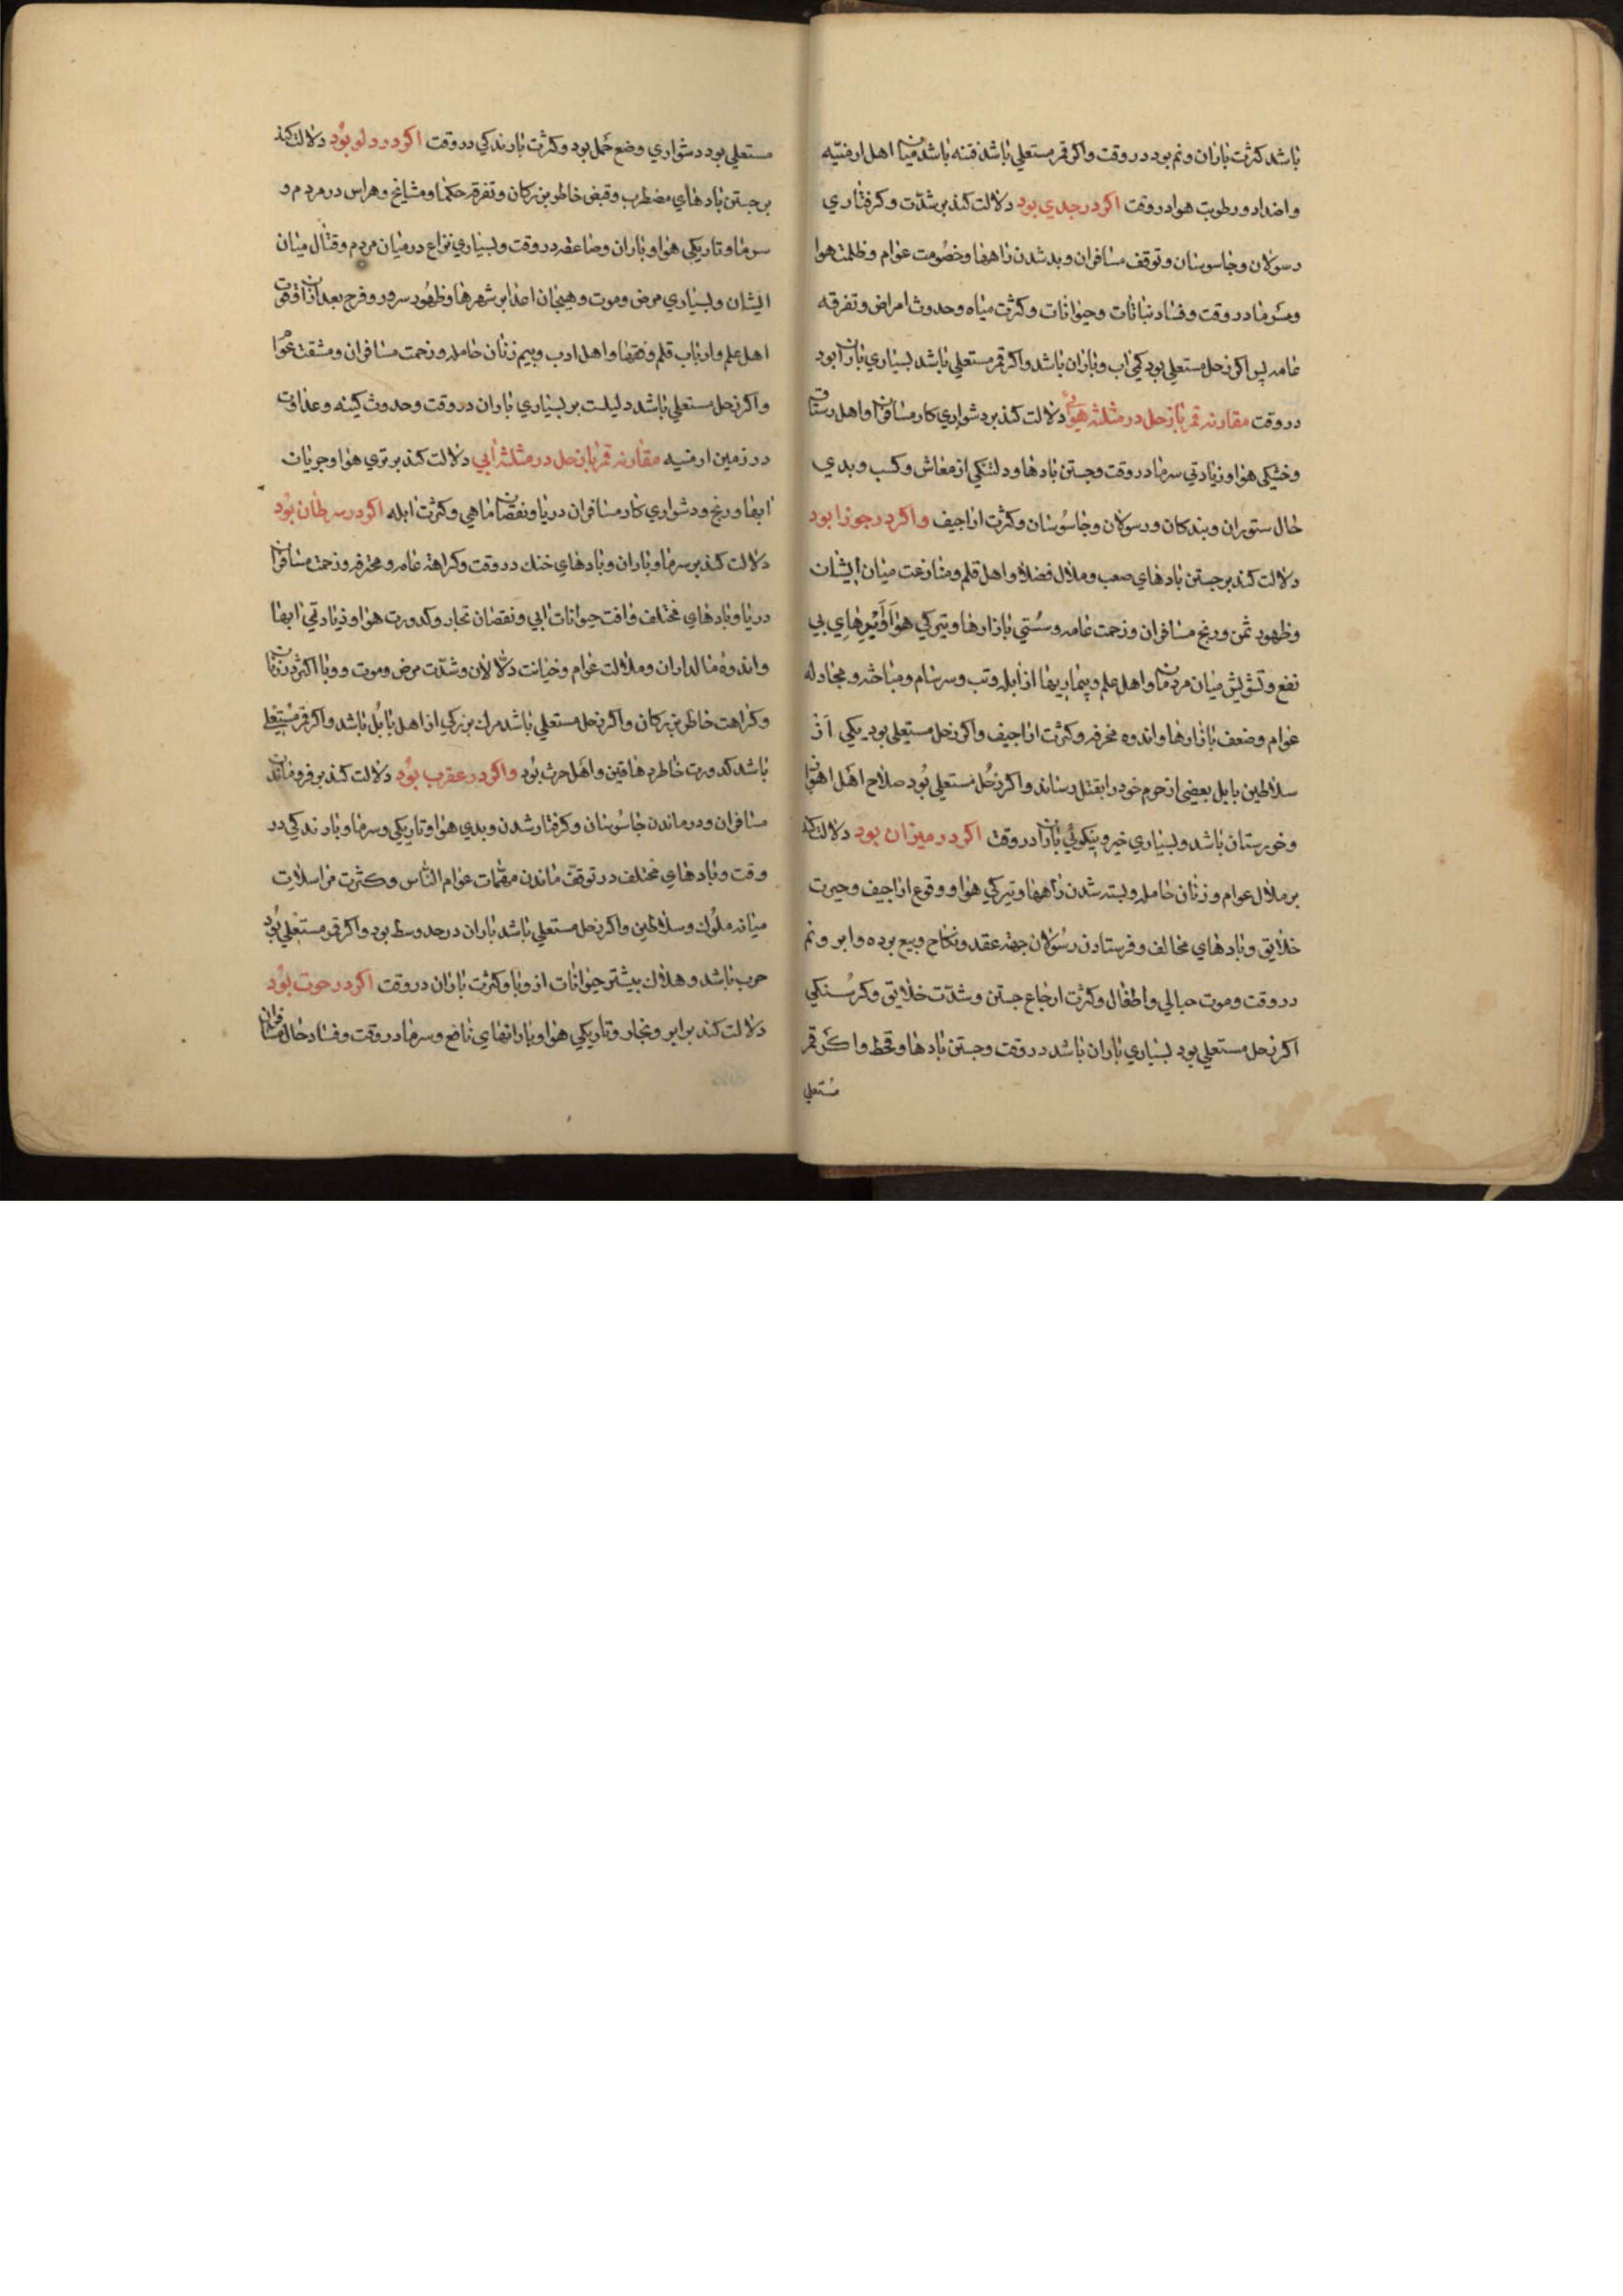 باشد کثرت باران و نم بود در وقت واکر قمر مستعلی باشد فتنه باشد میان اهل ارمنیّه
واضداد و رطوبت هوا در وقت اکر در جدی بود دلالت کند بر شدّت و کرفتاری
رسولان و جاسوسان و توقف مسافران و بد شدن راهها و خصُومت عوام و ظلمت هوا
و سَرما در وقت و فساد نباتات و حیوانات و کثرت میاه و حدوث امراض و تفرقه
عامه پس اکر زحل مستعلی بود کمی اب و باران باشد واکر قمر مستعلی باشد بسیاری باران بود
در وقت مقارنه قمر با زحل در مثلثه هوایی دلالت کند بر دشواری کار مسافران و اهل رستاق
و خشکی هوا و زیادتی سرما در وقت و جستن بادها و دلتنکی از معاش و کسب و بدی
حال ستوران و بندکان و رسولان و جاسُوسان و کثرت اراجیف واکر در جوزا بود
دلالت کند بر جستن بادهای صعب و ملال فضلا و اهل قلم و منازعت میان ایشان
و ظهور ثمن و رنج مسافران و زحمت عامه و سُستی بازارها و تیرکی هوا و اَبرهای بی
نفع و تشویش میان مردمان و اهل علم و بیماریها از ابله و تب و سرسام و مباحثه و مجادله
عوام و ضعف بازارها و اندوه محرفه و کثرت اراجیف واکر زحل مستعلی بود یکی از
سلاطین بابل بعضی از حرم خود را بقتل رساند واکر زحُل مستعلی بُود صلاح اهَل اهواز
و خورستان باشد و بسیاری خیر و نیکوئی باران در وقت اکر در میزان بود دلالت کند
بر ملال عوام و زنان حامله و بسته شدن راهها و تیرکی هوا و وقوع اراجیف و حیرت
خلایق و بادهای مخالف و فرستادن رسُولان جهة عقد و نکاح و بیع برده و ابر و نم
در وقت و موت حبالی و اطفال و کثرت ارجاع جستن و شدّت خلایق و کرسُنکی
اکر زحل مستعلی بود بسیاری باران باشد در وقت و جستن بادها و قحط واکر قمر
مُستعلی
مستعلی بود دشواری وضع حَمل بود و کثرت بارندکی در وقت اکر در دلو بوُد دلالت کند
بر جستن بادهای مضطرب و قبض خاطر بزرکان و تفرقه حکما و مشایخ و هراس در مردم و
سرما و تاریکی هوا و باران و صاعقه در وقت و بسیاری نزاع در میان مردم و قتال میان
ایشان و بسیاری مرض و موت و هیجان اعدا بر شهرها و ظهُور سرور و فرح بعد از ان و فوت
اهل علم و ارباب قلم و فقها و اهل ادب و بیم زنان حامله و زحمت مسافران و مشقت عوام
واکر زحل مستعلی باشد دلیلت بر بسیاری باران در وقت و حدوث کینه و عداوت
در زمین ارمنیه مقارنه قمر با زحل در مثلثه ابی دلالت کند بر تری هوا و جریان
ابها و رنج و دشواری کار مسافران دریا و نقصان ماهی و کثرت ابله اکر در سرطان بوُد
دلالت کند بر سرما و باران و بادهای خنك در وقت و کراهة عامه و محترفه و زحمت مسافران
دریا و بادهای مختلف و افت حیوانات ابی و نقصان تجار و کدورت هوا و زیادتی ابها
و اندوه مالداران و ملالت عوام و خیانت دلالان و شدّت مرض و موت و وبا اکثر در زنان
و کراهت خاطر بزرکان واکر زحل مستعلی باشد مرك بزرکی از اهل بابُل باشد واکر قمر مُستعلی
باشد کدورت خاطر دهاقین و اهَل حرث بوُد واکر در عقرب بوُد دلالت کند بر فرو ماندن
مسافران و درماندن جاسُوسان و کرفتار شدن و بدی هوا و تاریکی و سرما و بارندکی در
وقت و بادهای مختلف در توقف ماندن مهمّات عوام النّاس و کثرت مراسلات
میانه ملُوك و سلاطین واکر زحل مستعلی باشد باران در حد وسط بود واکر قمر مستعلی بُود
حرب باشد و هلاك بیشتر حیوانات از وبا و کثرت باران در وقت اکر در حوت بوُد
دلالت کند بر ابر و بخار و تاریکی هوا و بارانهای نافع و سرما در وقت و فساد حال مسافران